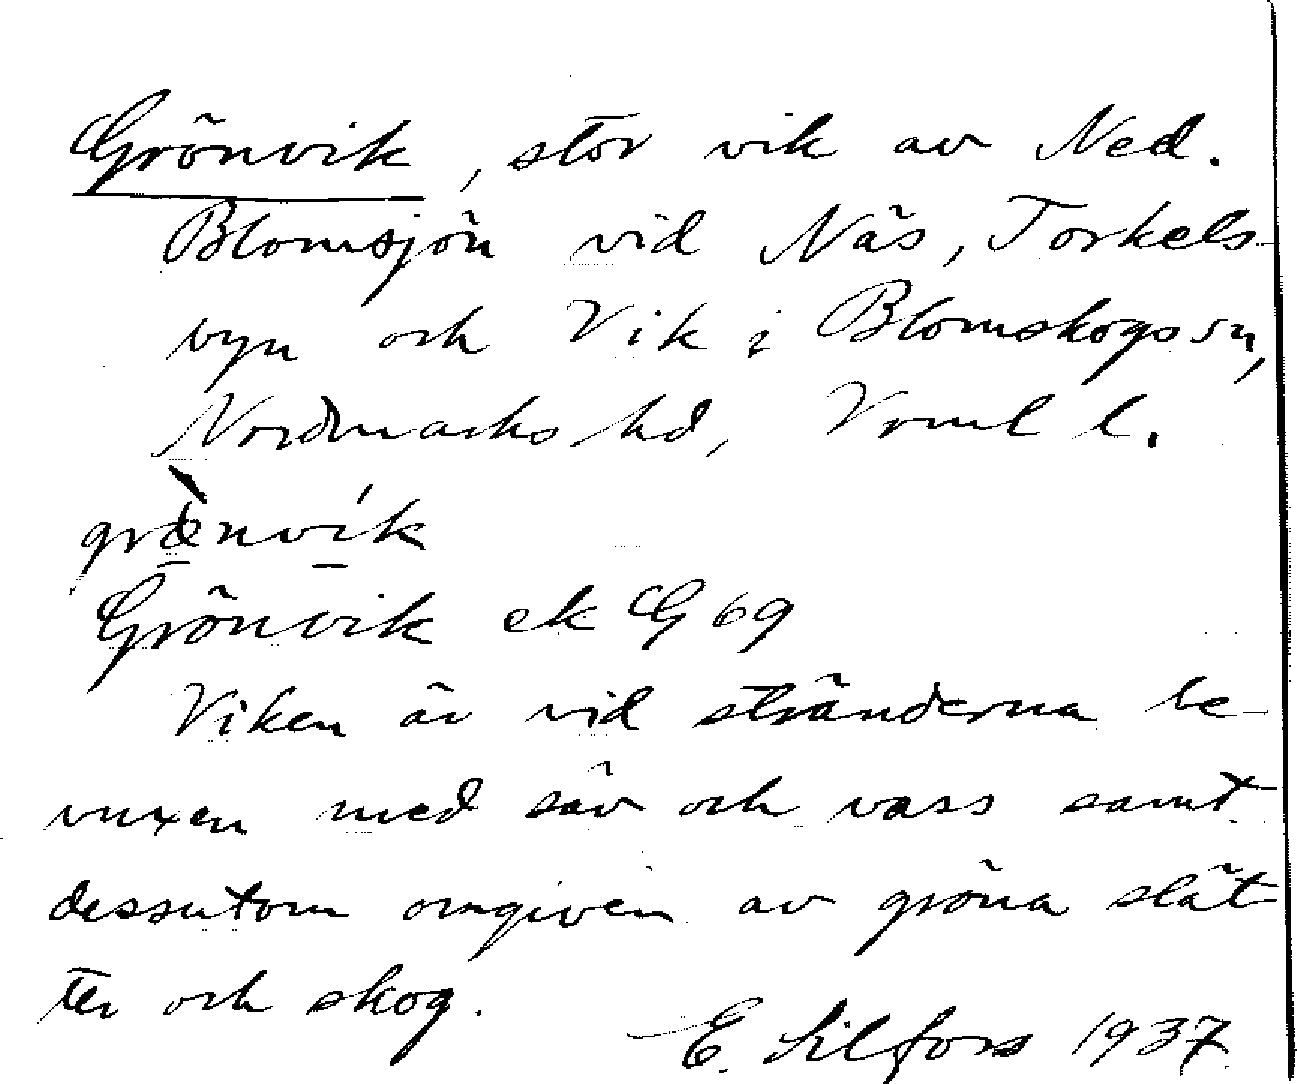 Grönvik, stor vik av Ned.
Blomsjön vid Näs, Torkels-
vyn och Vik i Blomskogs sn,
Nordmarks hd, Vrml l.
grɶ̀nvík
Grönvik ek G 69
Viken är vid stränderna be-
vuxen med säv och vass samt
dessutom omgiven av gröna slät-
ter och skog.
E. Silfors 1937